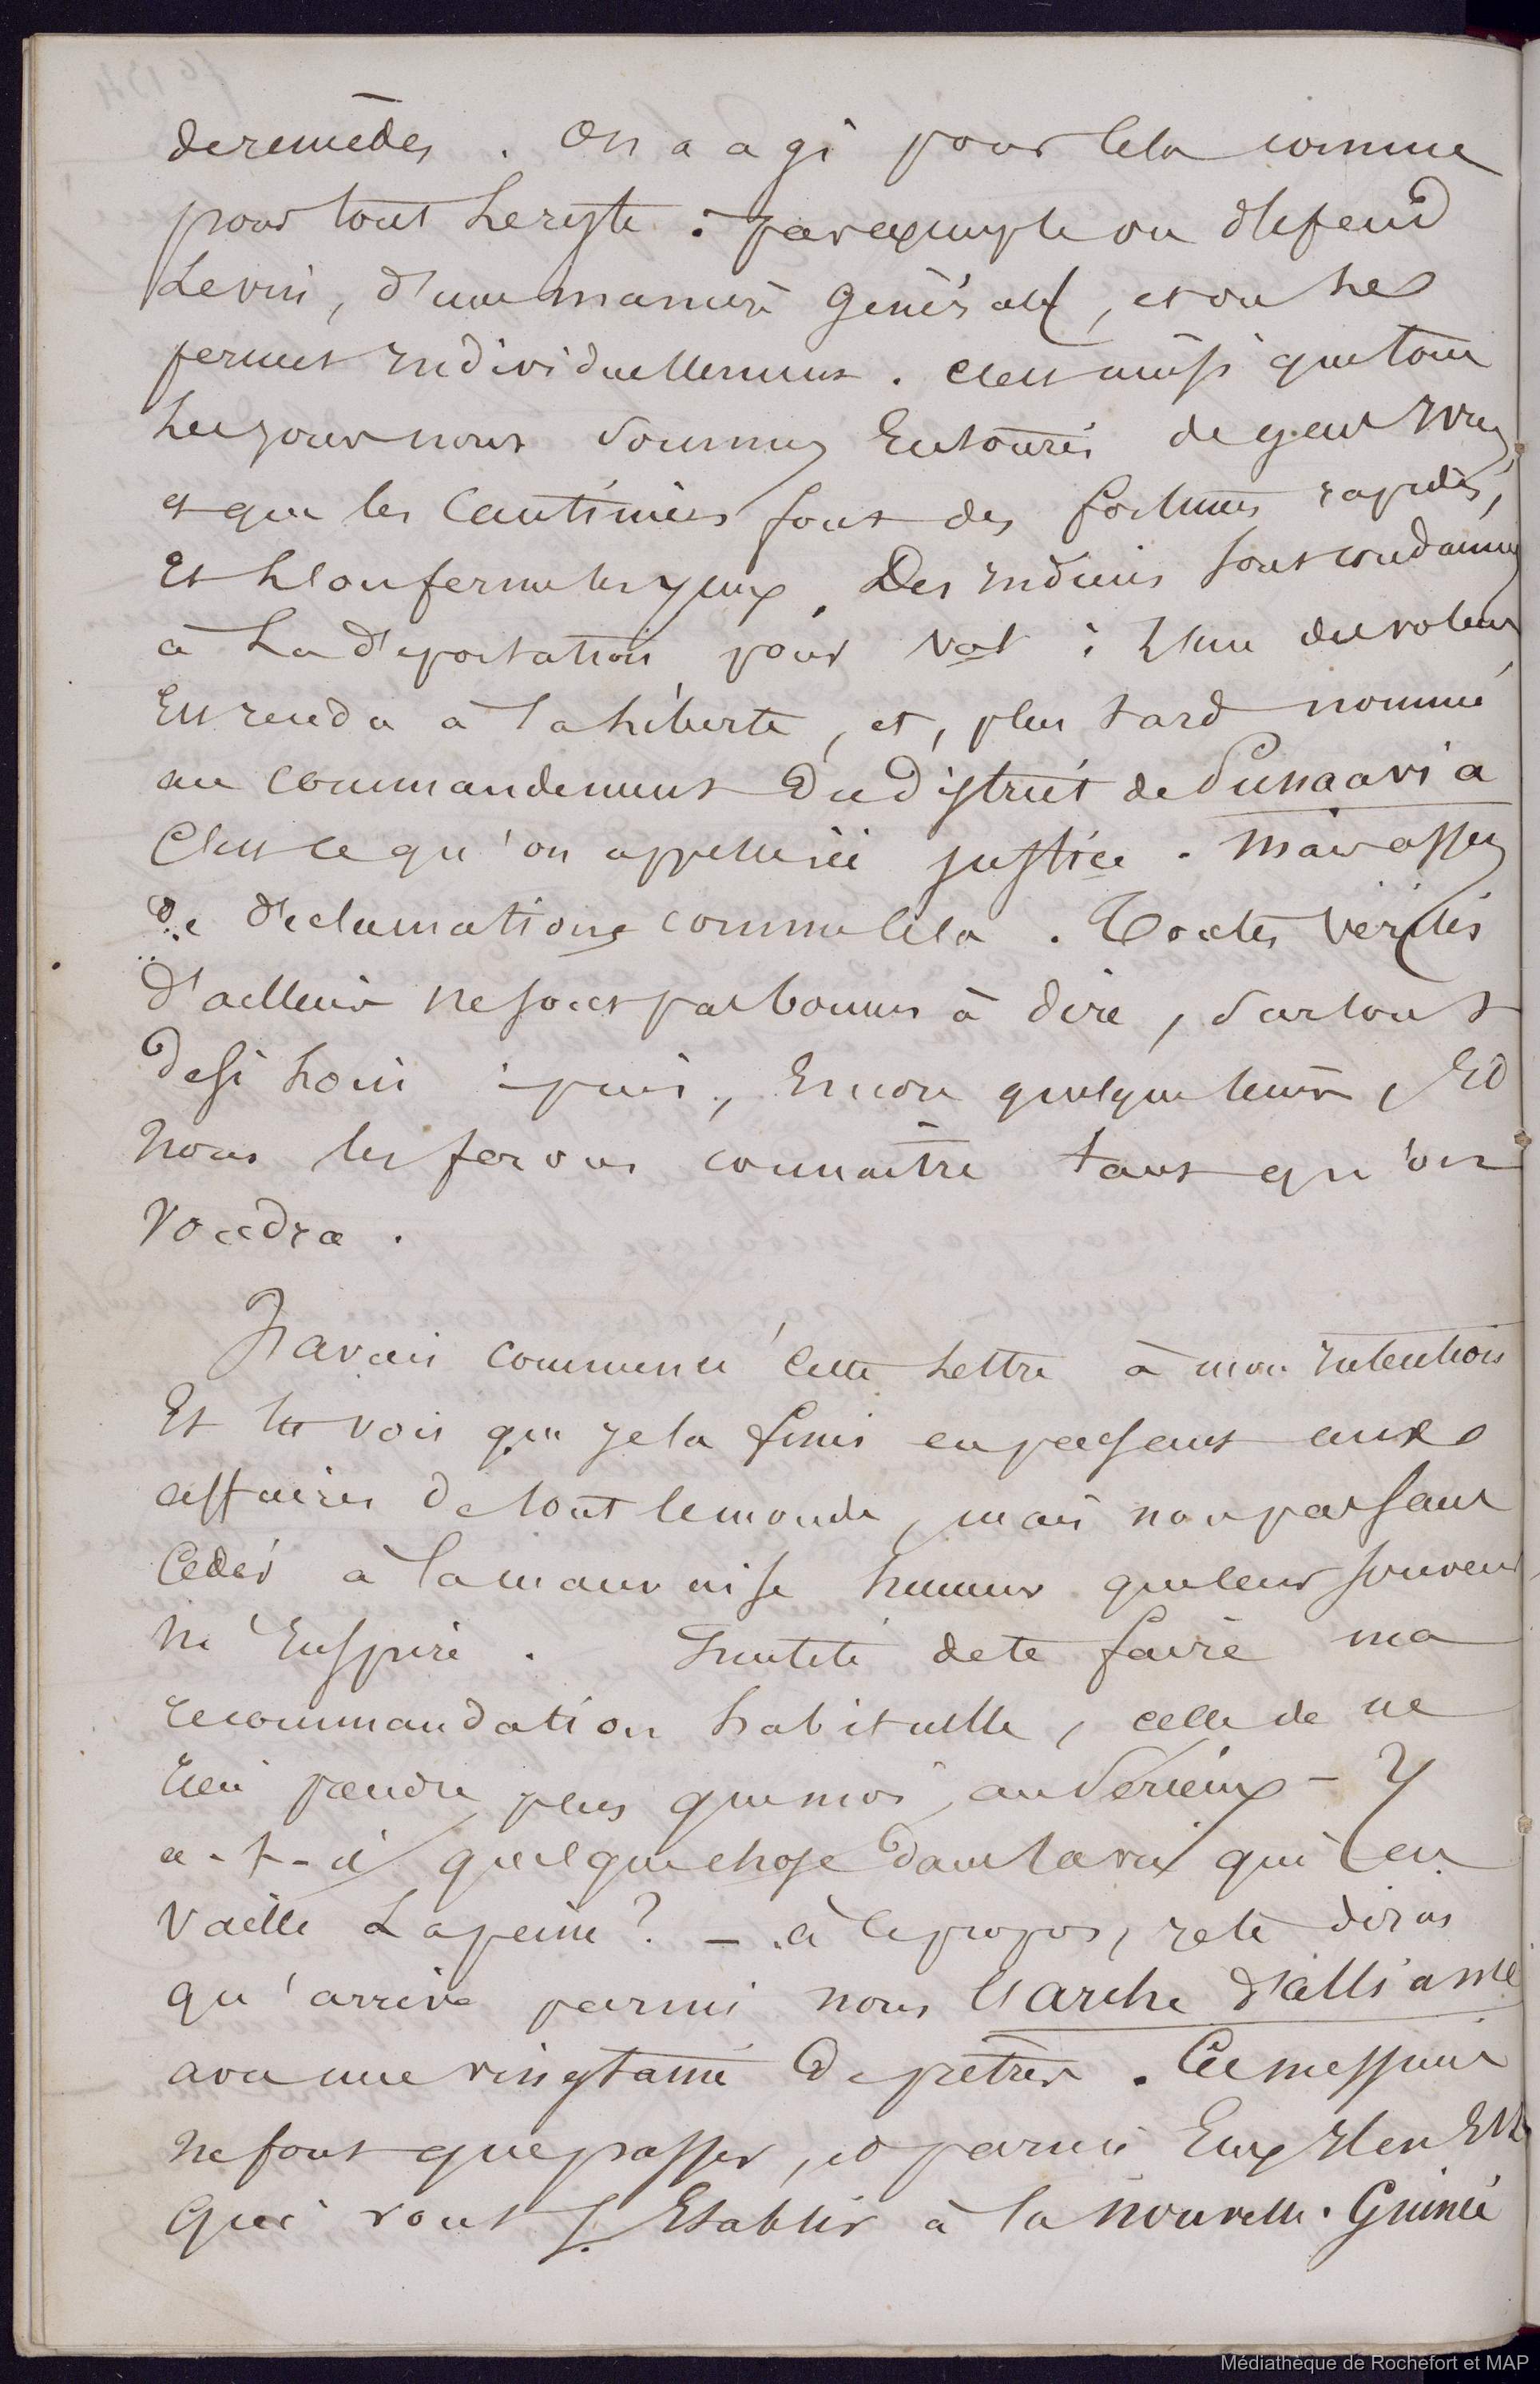 de remèdes. On a agi pour cela comme
pour tout le reste : par exemple on défend
le vin, d'une manière générale, et on le
permet individuellement. C'est ainsi que tous
les jours nous sommes entourés de gens ivres,
et que les cantiniers font des fortunes rapides,
et l'on ferme les yeux. Des indiens sont condamnés
à la déportation pour vol : l'un des voleurs
est rendu à la liberté, et, plus tard nommé
au commandement du district de Punaavia
C'est ce qu'on appelle ici justice. Mais assez
de déclamations comme cela. Toutes vérités
d'ailleurs ne sont pas bonnes à dire, surtout
de si loin : puis, encore quelque temps, et
nous les ferons connaître tant qu'on
voudra.
J'avais commencé cette lettre à mon intention
et tu vois que je la finis en pensant aux
affaires de tout le monde, mais non pas sans
céder à la mauvaise humeur que leur souvenir
m'inspire. Inutile de te faire ma
recommandation habituelle, celle de ne
rien prendre plus que moi, au sérieux - Y
a-t-il quelque chose dans la vie qui en
vaille la peine ? - à ce propos, je te dirai
qu'arrive parmi nous l'arche d'alliance
avec une vingtaine de prêtres. Ces messieurs
ne font que passer, et parmi eux il en est
qui vont s'établir à la nouvelle. Guinée
Médiathèque de Rochefort et MAP